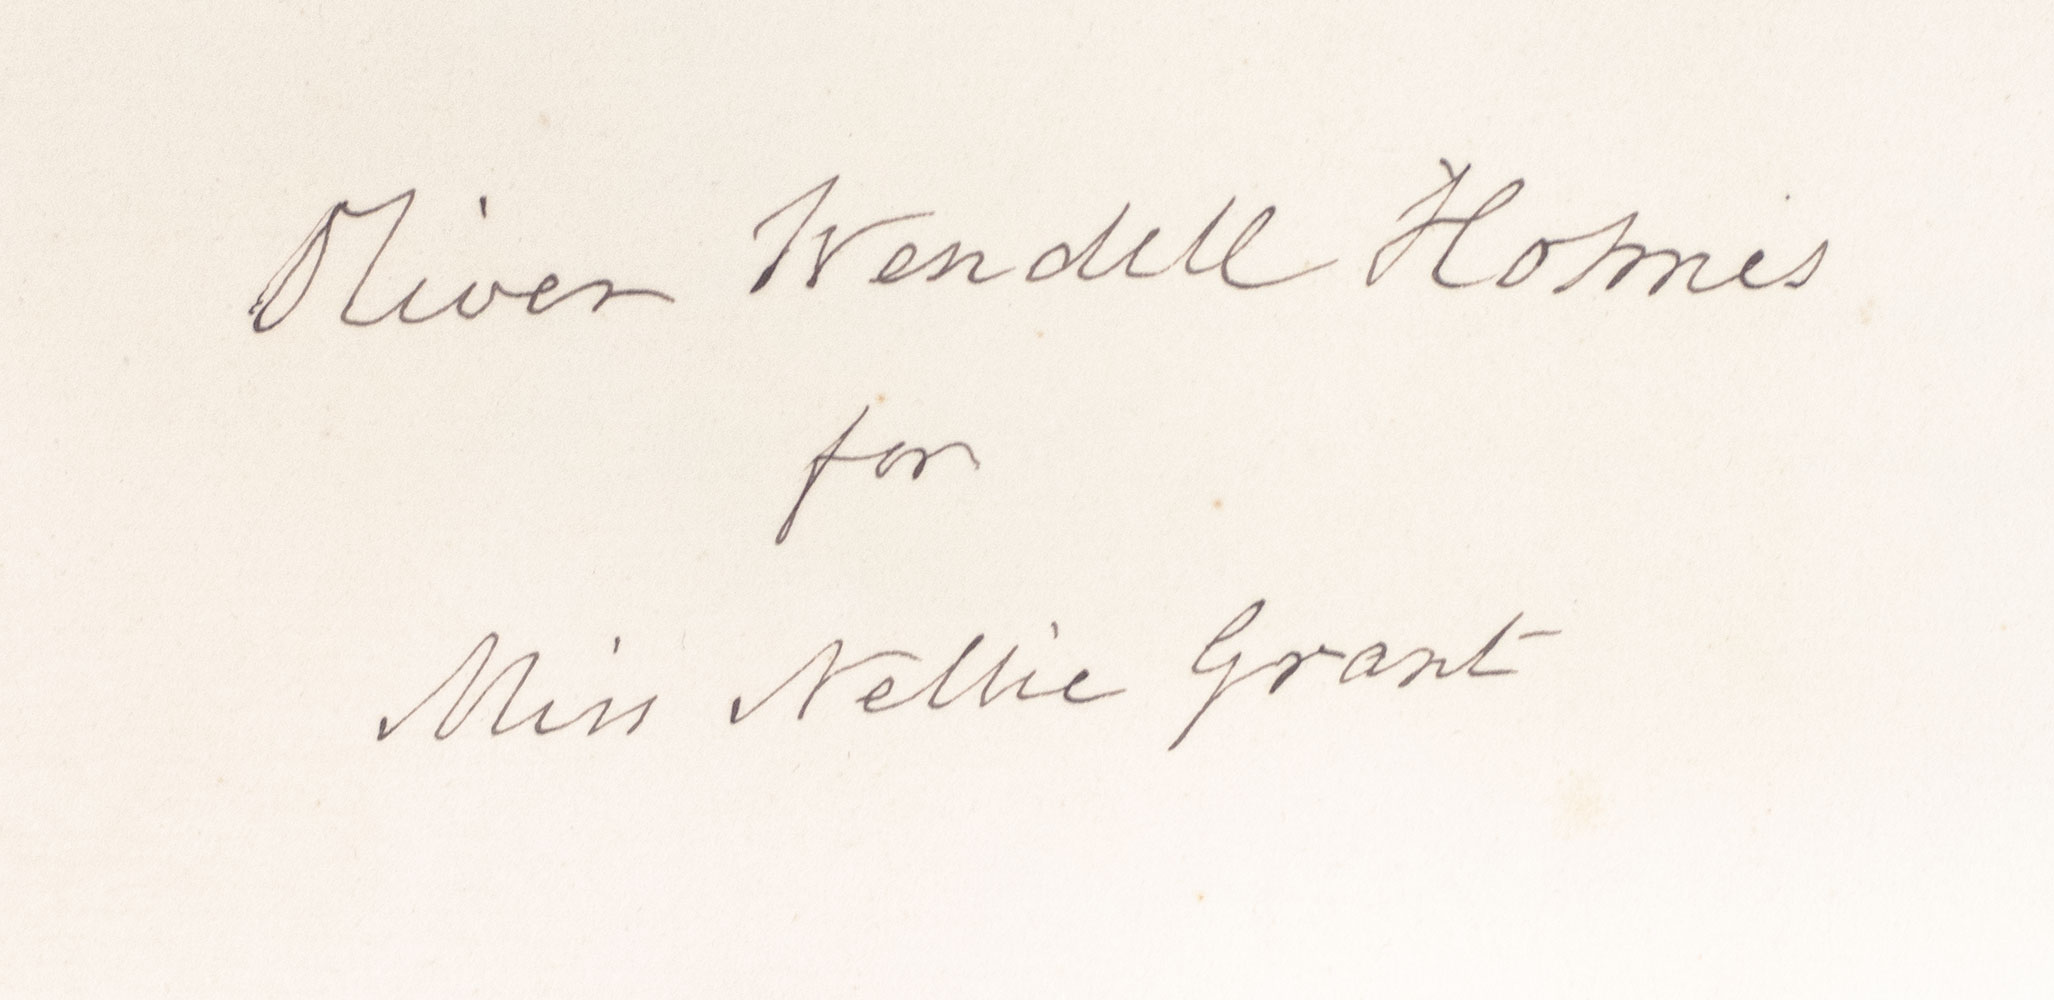 Oliver Wendell Holmes
for
Miss Nellie Grant